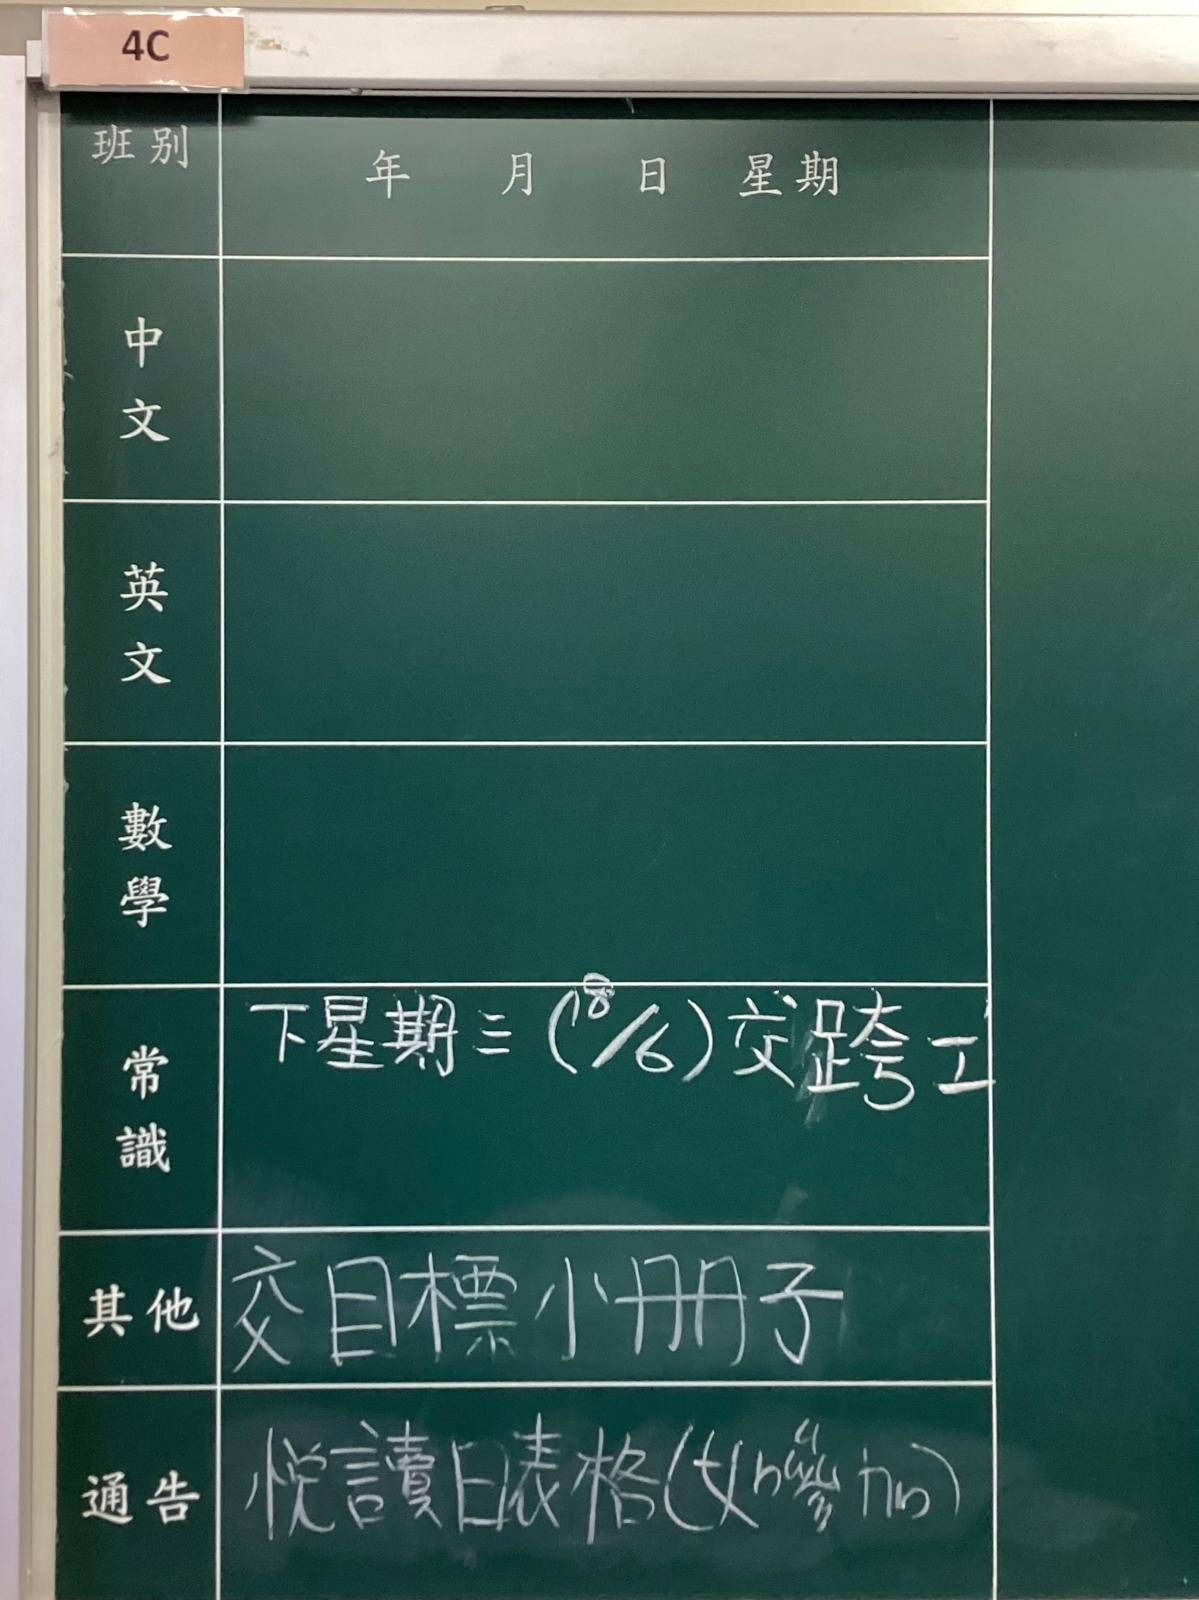 4C
班別 年 月 日 星期
中文
英文
數學
常識 下星期三(18/6)交跨工
其他 交目標小冊子
通告 悅讀日表格(如參加)